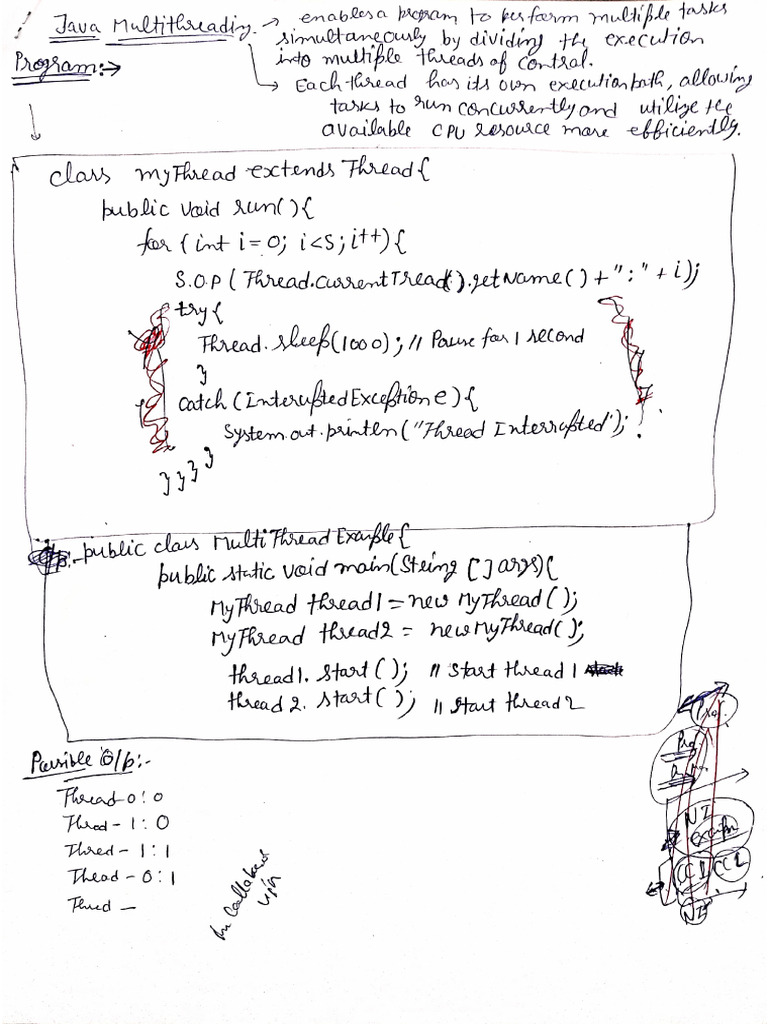 Java Multithreading → enables a program to perform multiple tasks
simultaneously by dividing the execution
into multiple threads of control.
Program:→
→ Each thread has its own execution path, allowing
tasks to run concurrently and utilize the
available CPU resource more efficiently.
class myThread extends Thread{
public void run(){
for (int i=0; i<5; i++){
S.O.P (Thread.currentTread().getName() + ":" + i);
try{
Thread.sleep(1000); // Pause for 1 second
}
catch (InteruptedException e){
System.out.println("Thread Interrupted");
} } } }
public class MultiThread Example{
public static void main(String [] args){
MyThread thread1 = new MyThread();
MyThread thread2 = new MyThread();
thread1. start(); // Start thread 1
thread2. start(); // Start thread 2
Possible O/p:-
Thread-0:0
Thred-1:0
Thred-1:1
Thead-0:1
Thred -
NI
CC1 CC2
NI